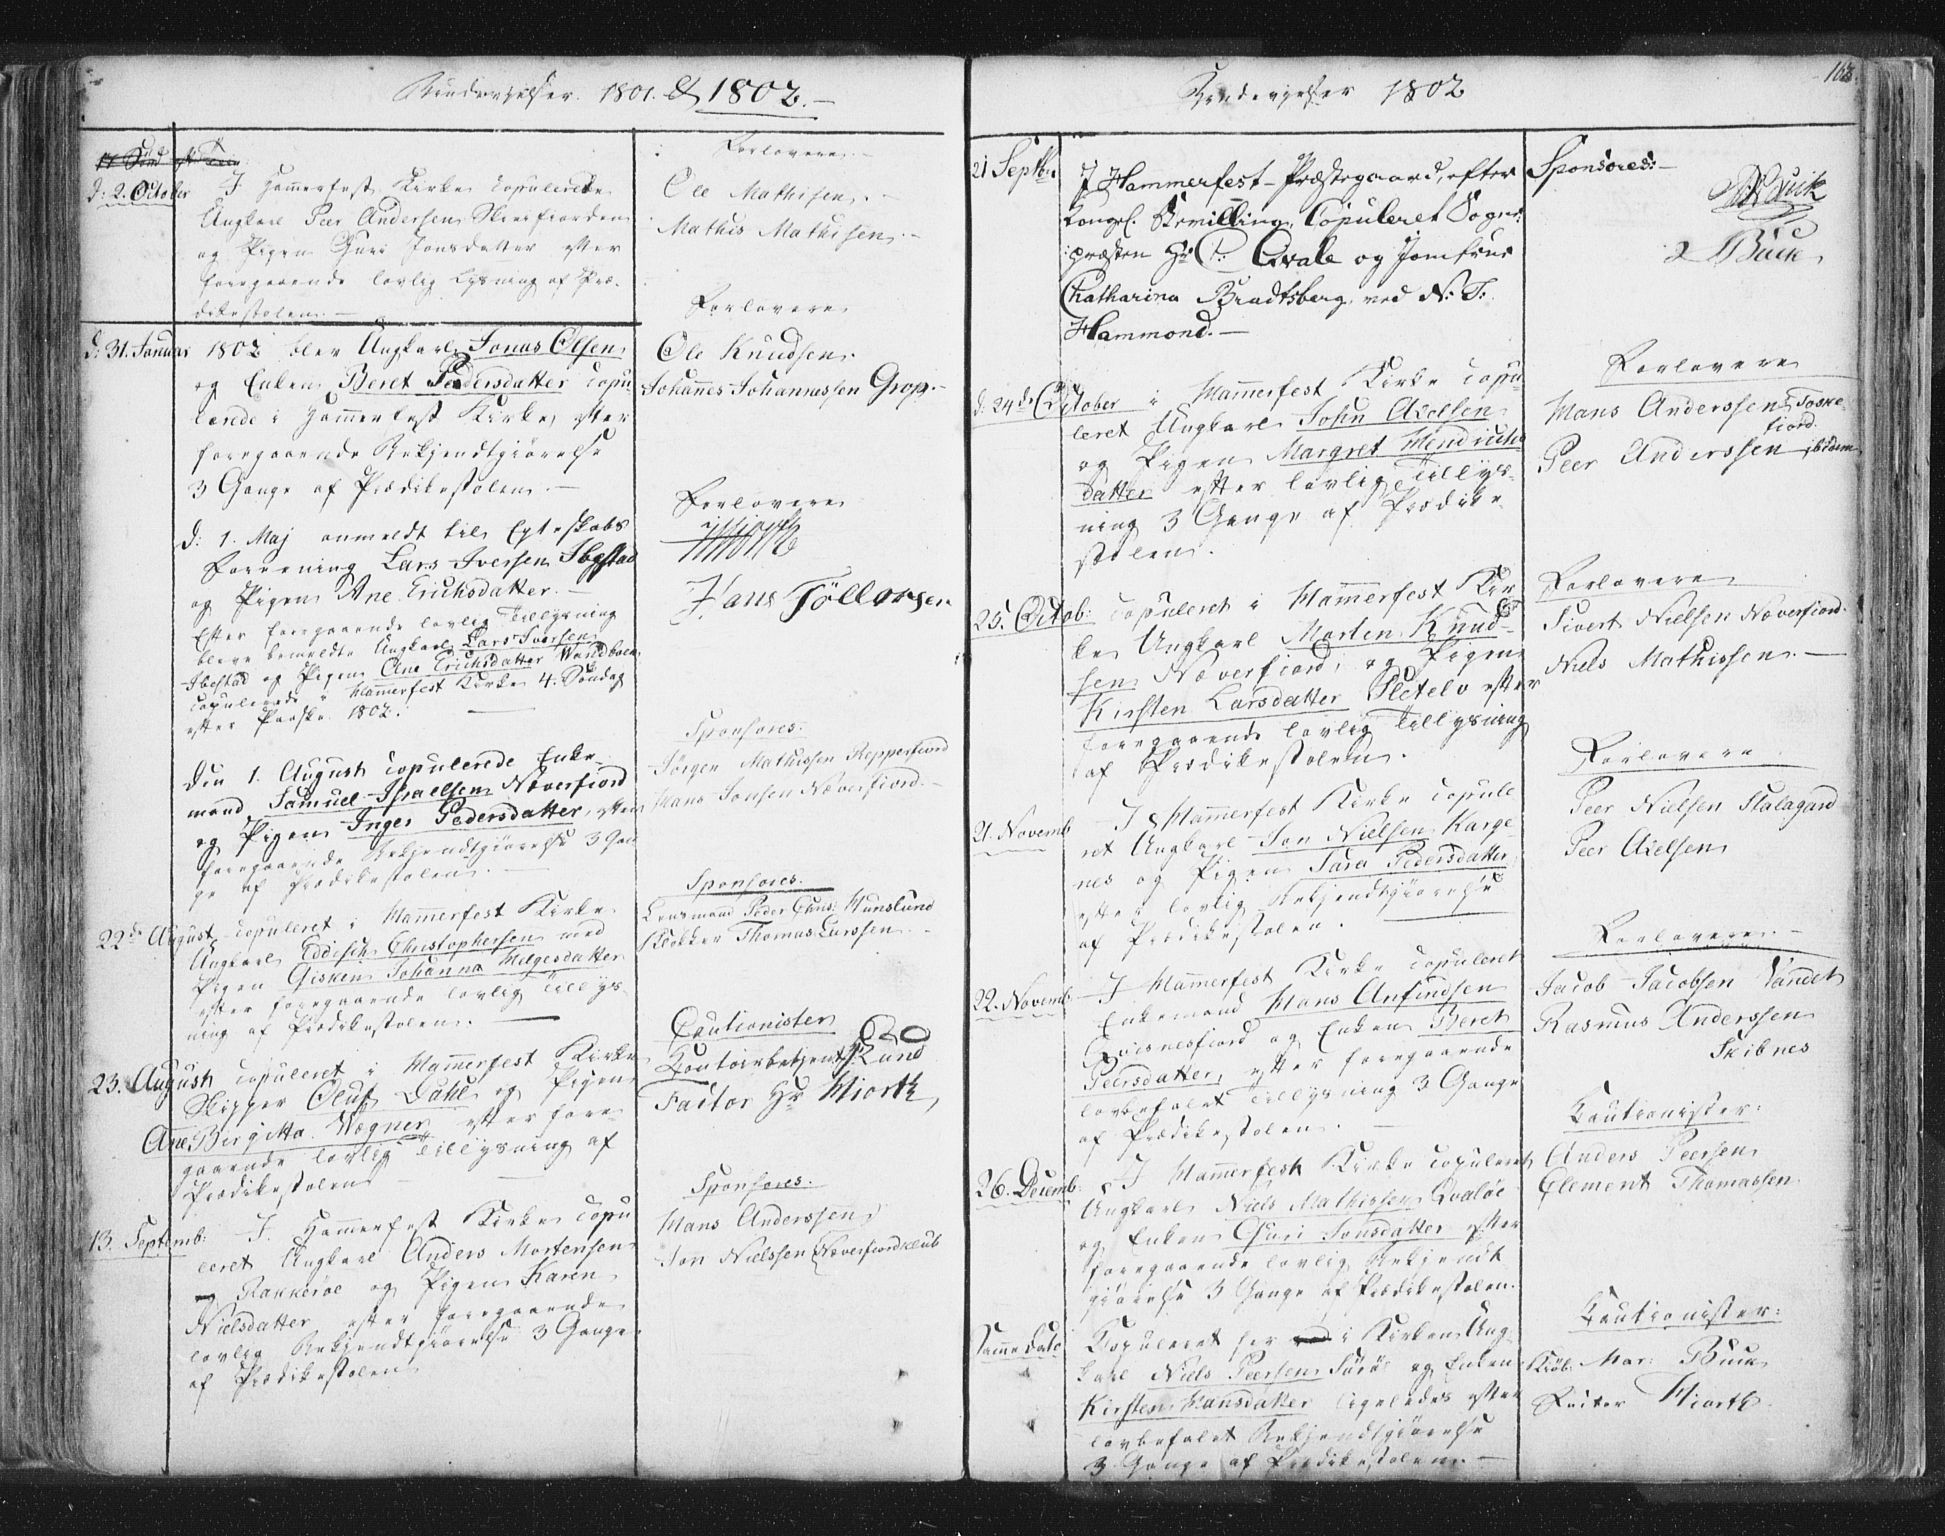 Kundevielser. 1801. & 1802.
d: 2. October
I Hammerfest Kirke copulerede
Ungkarl Peer Andersen
og Pigen Guri Jonsdatter efter
foregaaende lovlig Lysning af Præ-
dikestolen.
Forlovere
Ole Mathisen.
Mathis Mathisen.
d: 31. Januar 1802 blev Ungkarl Jonas Olsen
og Enken Beret Pedersdatter copu-
lerede i Hammerfest Kirke, efter
foregaaende Bekjendtgiørelse
3 Gange af Prædikestolen.
Forlovere
Ole Knudsen.
Johannes Johannessen Grop.
d: 1. Maj anmeldt til Egteskabs
Forening Lars Iversen Ibestad
og Pigen Ane Erichsdatter.
Efter foregaaende lovlig Tillysning
bleve bemeldte Ungkarl Lars Iversen
Ibestad og Pigen Ane Erichsdatter
copulerede i Hammerfest Kirke 4. Søndag
efter Paaske 1802.
Forlovere
Hans Töllorsen
Den 1. August copulerede Enke-
mand Samuel Israelsen Næverfiord
og Pigen Inger Pedersdatter, efter
foregaaende Bekjendtgiørelse 3 Gan-
ge af Prædikestolen.
Sponsores:
Jörgen Mathissen Repperfiord
Hans Jonsen Næverfiord.
22de August copuleret i Hammerfest Kirke
Ungkarl Eddisch Christophersen med
Pigen Gisken Johanna Helgesdatter
efter foregaaende lovlig Tillys-
ning af Prædikestolen.
Sponsores.
Lensmand Peder Chris: Hunslund
Klokker Thomas Larssen.
23. August copuleret i Hammerfest Kirke
Skipper Oluf Dahl og Pigen
Ane Birgitta Wegner efter fore-
gaaende lovlig Tillysning af
Prædikestolen
Cautionister
Contoirbetjent Lund
Factor Hr Hiorth
13. Septemb: I Hammerfest Kirke copu
leret Ungkarl Anders Mortensen
Rakkeröe og Pigen Karen
Nielsdatter efter foregaaende
lovlig Bekjendtgiørelse 3 Gange
af Prædikestolen
Sponsores.
Hans Anderssen
Jon Nielssen Næverfiordklub
Kundevielser 1802
21 Septbr.
I Hammerfest Præstegaard, efter
kongel. Bevilling, Copuleret Sogne-
præsten Hr C: Qvale og Jomfrue
Chatharina Bradtsberg, ved N: T:
Hammond.
Sponsores:
Buck
Buck
d. 24de October i Hammerfest Kirke copu-
leret Ungkarl John Axelsen
og Pigen Margret Hendrichs
datter efter lovlig Tillys-
ning 3 Gange af Prædike-
stolen.
Forlovere
Hans Anderssen Toske-
fiord.
Peer Anderssen ibidem
25. Octob: copuleret i Hammerfest Kir
ke Ungkarl Morten Knud-
sen Næverfiord, og Pigen
Kirsten Larsdatter Sletelv efter
foregaaende lovlig Tillysning
af Prædikestolen.
Forlovere
Sivert Nielsen Næverfiord.
Niels Mathissen.
21. Novemb I Hammerfest Kirke copule
ret Ungkarl Jon Nielsen Karge-
nes og Pigen Sara Pedersdatter
efter lovlig Bekjendtgiørelse
af Prædikestolen.
Forlovere
Peer Nielsen Stalagard
Peer Axelsen
22. Novemb. I Hammerfest Kirke copuleret
Enkemand Hans Anfindsen
Qvisnesfiord og Enken Beret
Peersdatter, efter foregaaende
lovbefalet Tillysning 3 Gange
af Prædikestolen.
Forlovere.
Jacob Jacobsen Vandet
Rasmus Anderssen
Skibnes
26. Decemb: I Hammerfest Kirke copuleret
Ungkarl Niels Mathissen Qvalöe
og Enken Guri Jonsdatter efter
foregaaende lovlig Bekjendt
giørelse 3 Gange af Prædikestolen.
Cautionister:
Anders Peersen
Clement Thomassen.
Samme Dato Copuleret her i Kirken Ung
karl Niels Peersen Söröe og Enken
Kirsten Hansdatter ligeledes efter
lovbefalet Bekjendtgiørelse
3 Gange af Prædikestolen.
Cautionister:
Kiöb: Mar: Buck
Factor Hiorth.